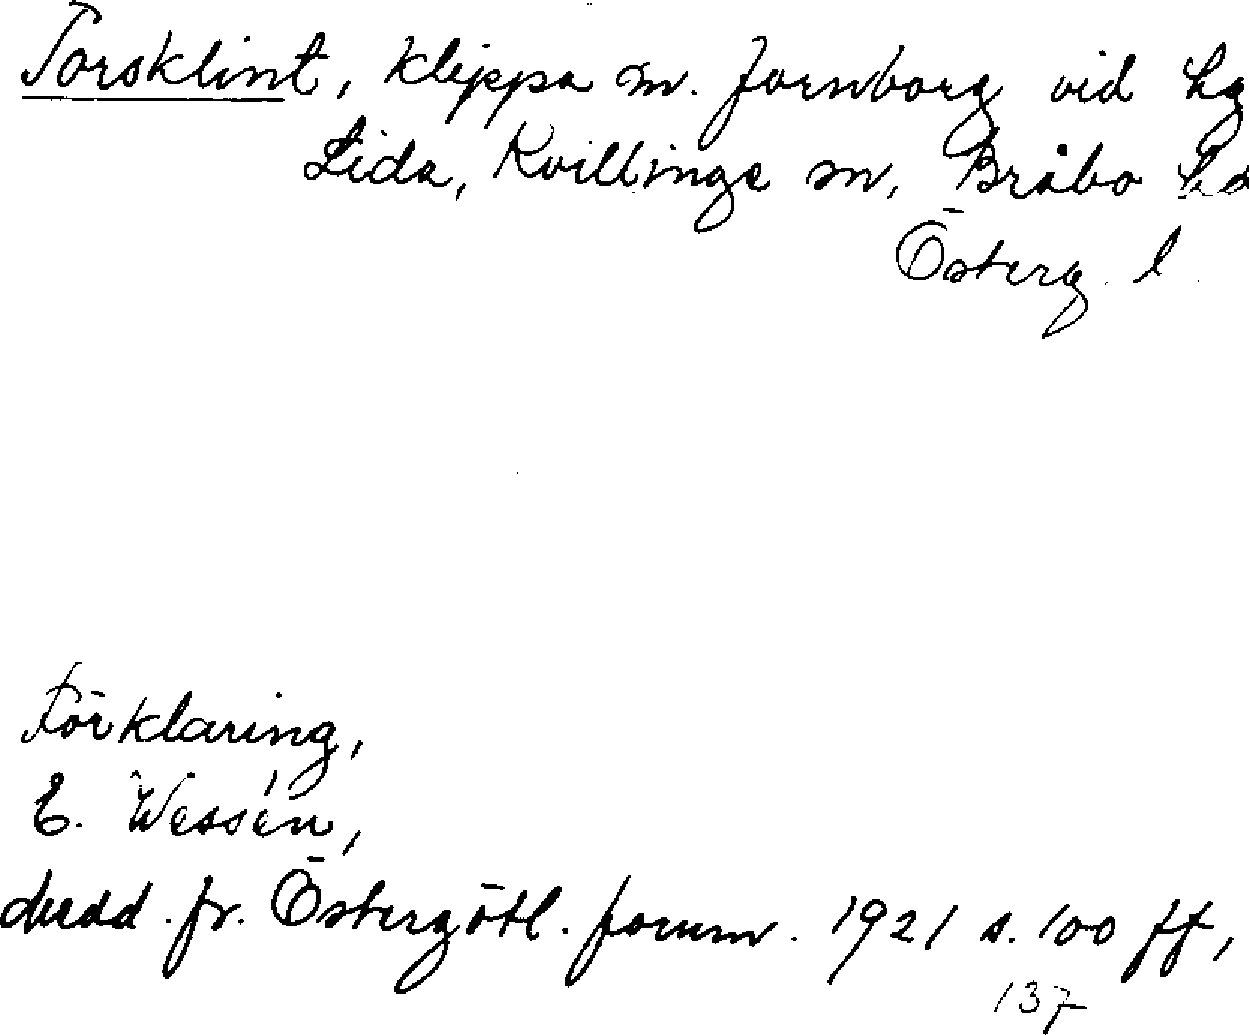 Torsklint, klippa m. fornborg vid hg
Lida, Kvillinge sn, Bråbo hd
Österg. l.
Förklaring,
E. Wessén,
Medd. fr. Östergötl. fornm. 1921 s. 100 ff,
137